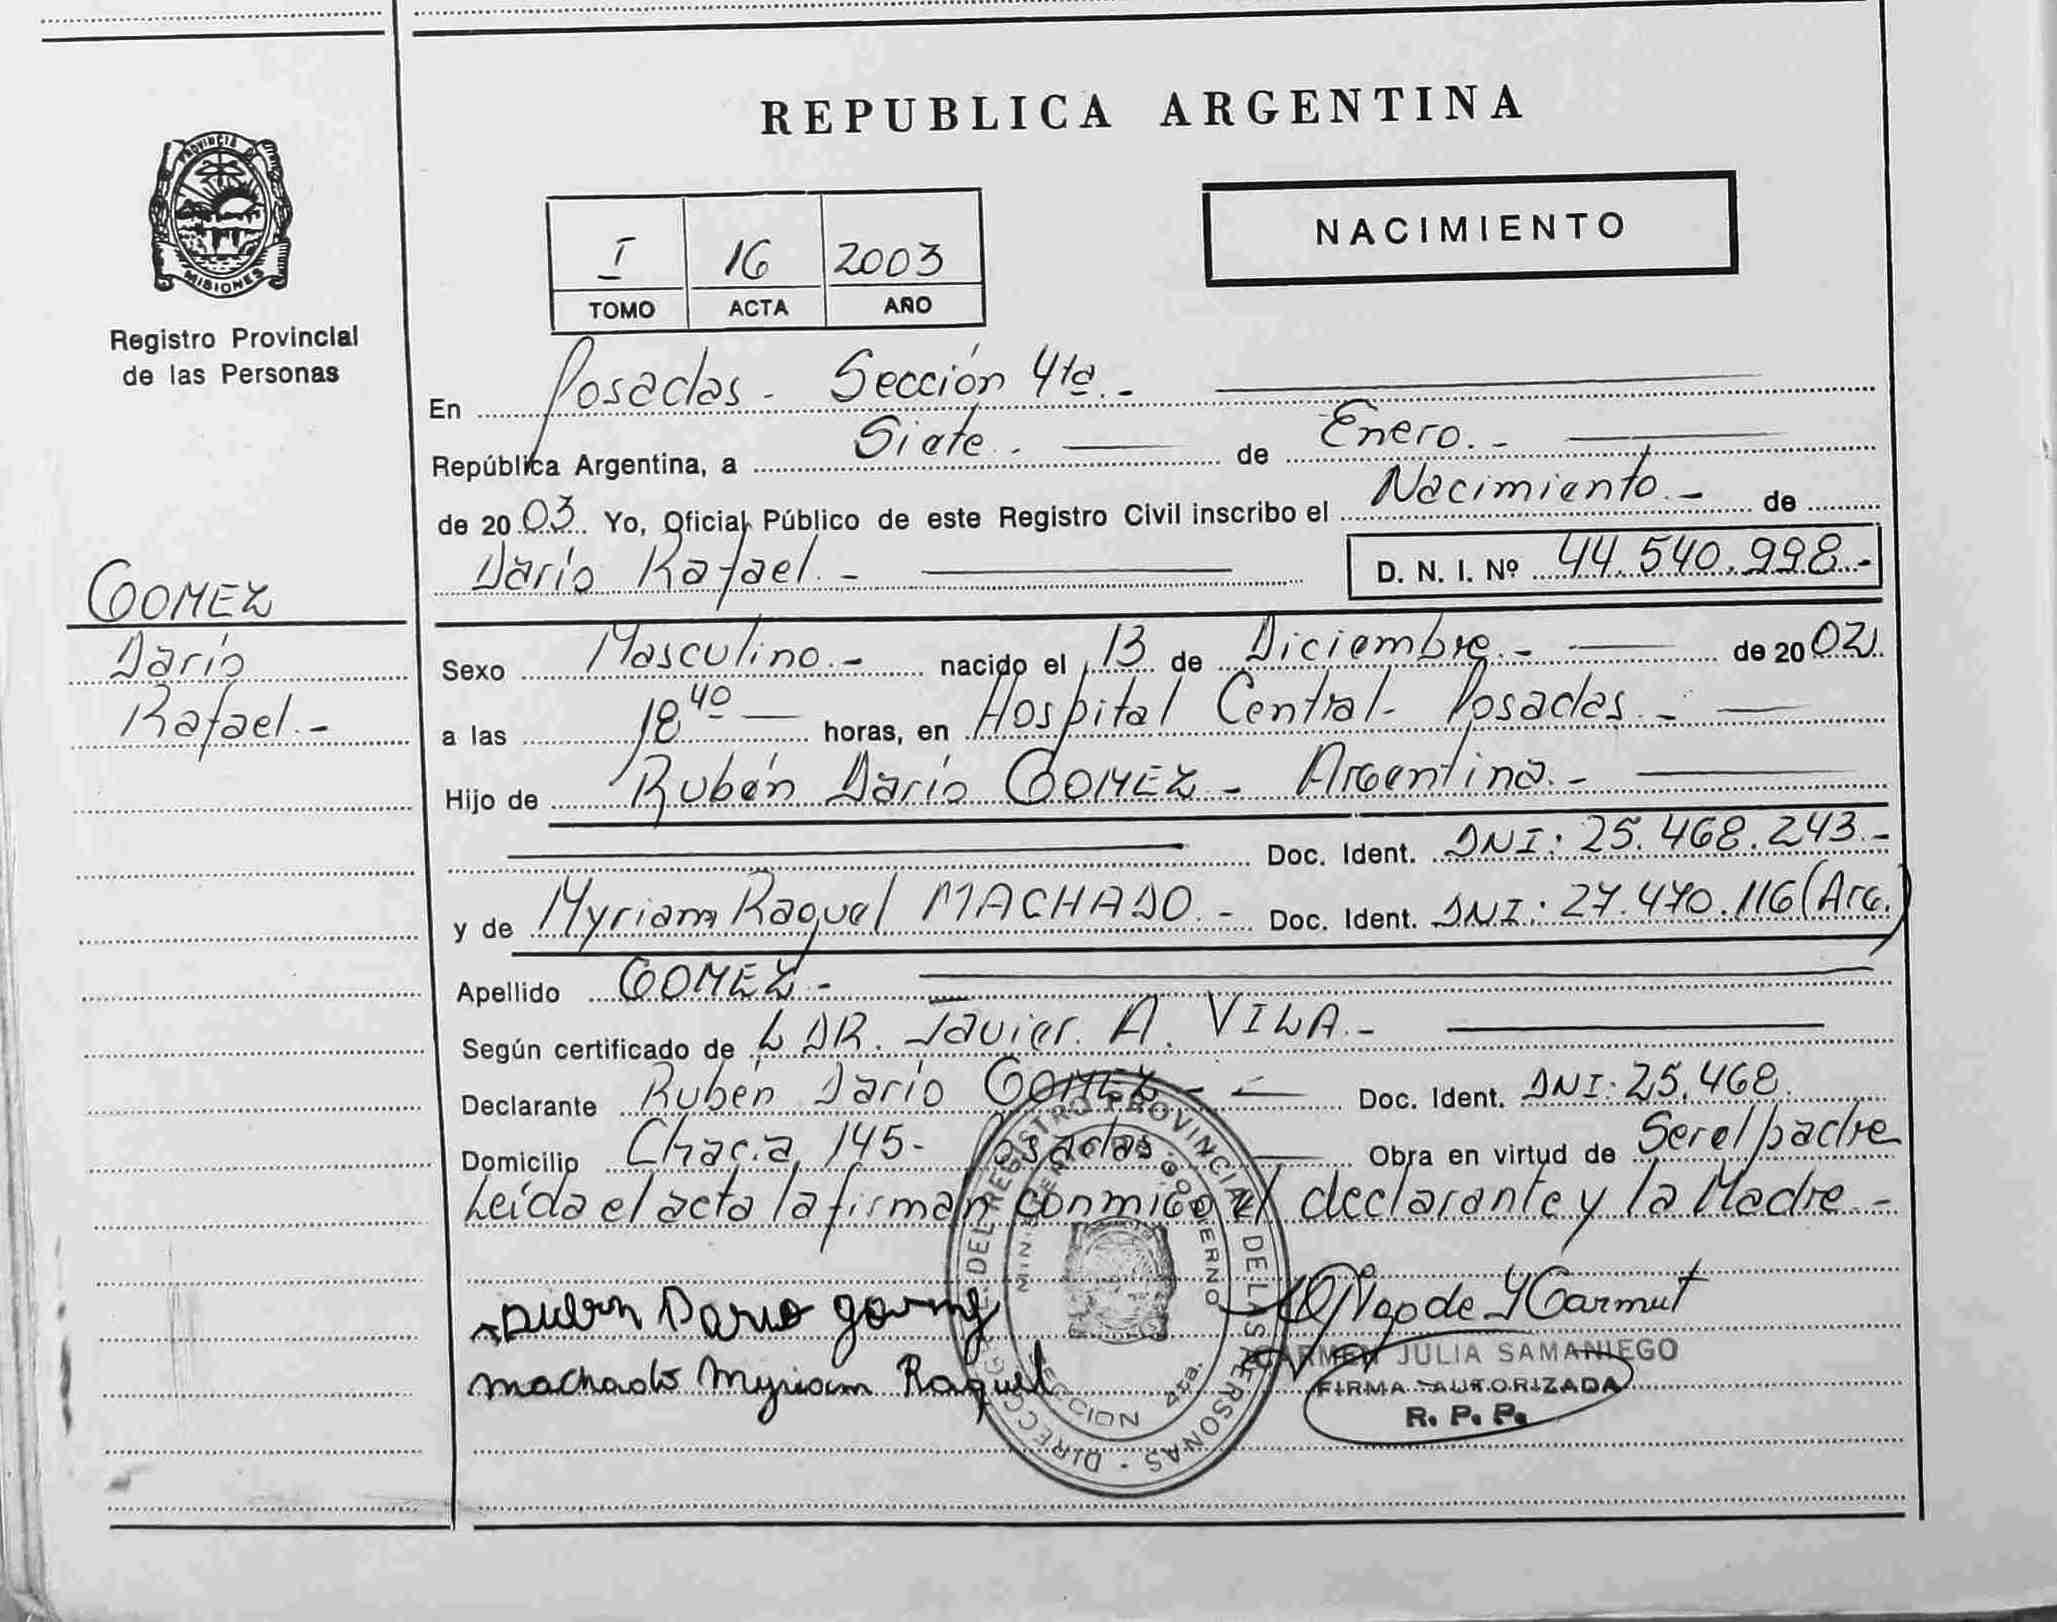 REPUBLICA ARGENTINA
PROVINCIA DE
MISIONES
Registro Provincial
de las Personas
NACIMIENTO
I 16 2003
TOMO ACTA AÑO
En Posadas - Sección 4ta.-
República Argentina, a Siete.- de Enero.-
de 2003 Yo, Oficial Público de este Registro Civil inscribo el Nacimiento.- de
Darío Rafael.- D. N. I. Nº 44.540.998.-
GOMEZ
Darío
Rafael.-
Sexo Masculino.- nacido el 13 de Diciembre.- de 2002
a las 18 40 horas, en Hospital Central- Posadas.-
Hijo de Rubén Darío GOMEZ - Argentina.-
Doc. Ident. DNI: 25.468.243.-
y de Myriam Raquel MACHADO.- Doc. Ident. DNI: 27.470.116 (Arg.)
Apellido GOMEZ.-
Según certificado de L DR. Javier. A. VILA.-
Declarante Rubén Darío GOMEZ - Doc. Ident. DNI: 25.468.
Domicilio 145- Posadas Obra en virtud de Ser el padre
Leída el acta la firman conmigo el declarante y la Madre.-
Ruben Dario gomez
machado Myriam Raquel
DIRECCION DEL REGISTRO PROVINCIAL DE LAS PERSONAS -
MINISTERIO DE GOBIERNO
SECCION 4ta.
CARMEN JULIA SAMANIEGO
FIRMA AUTORIZADA
R. P. P.